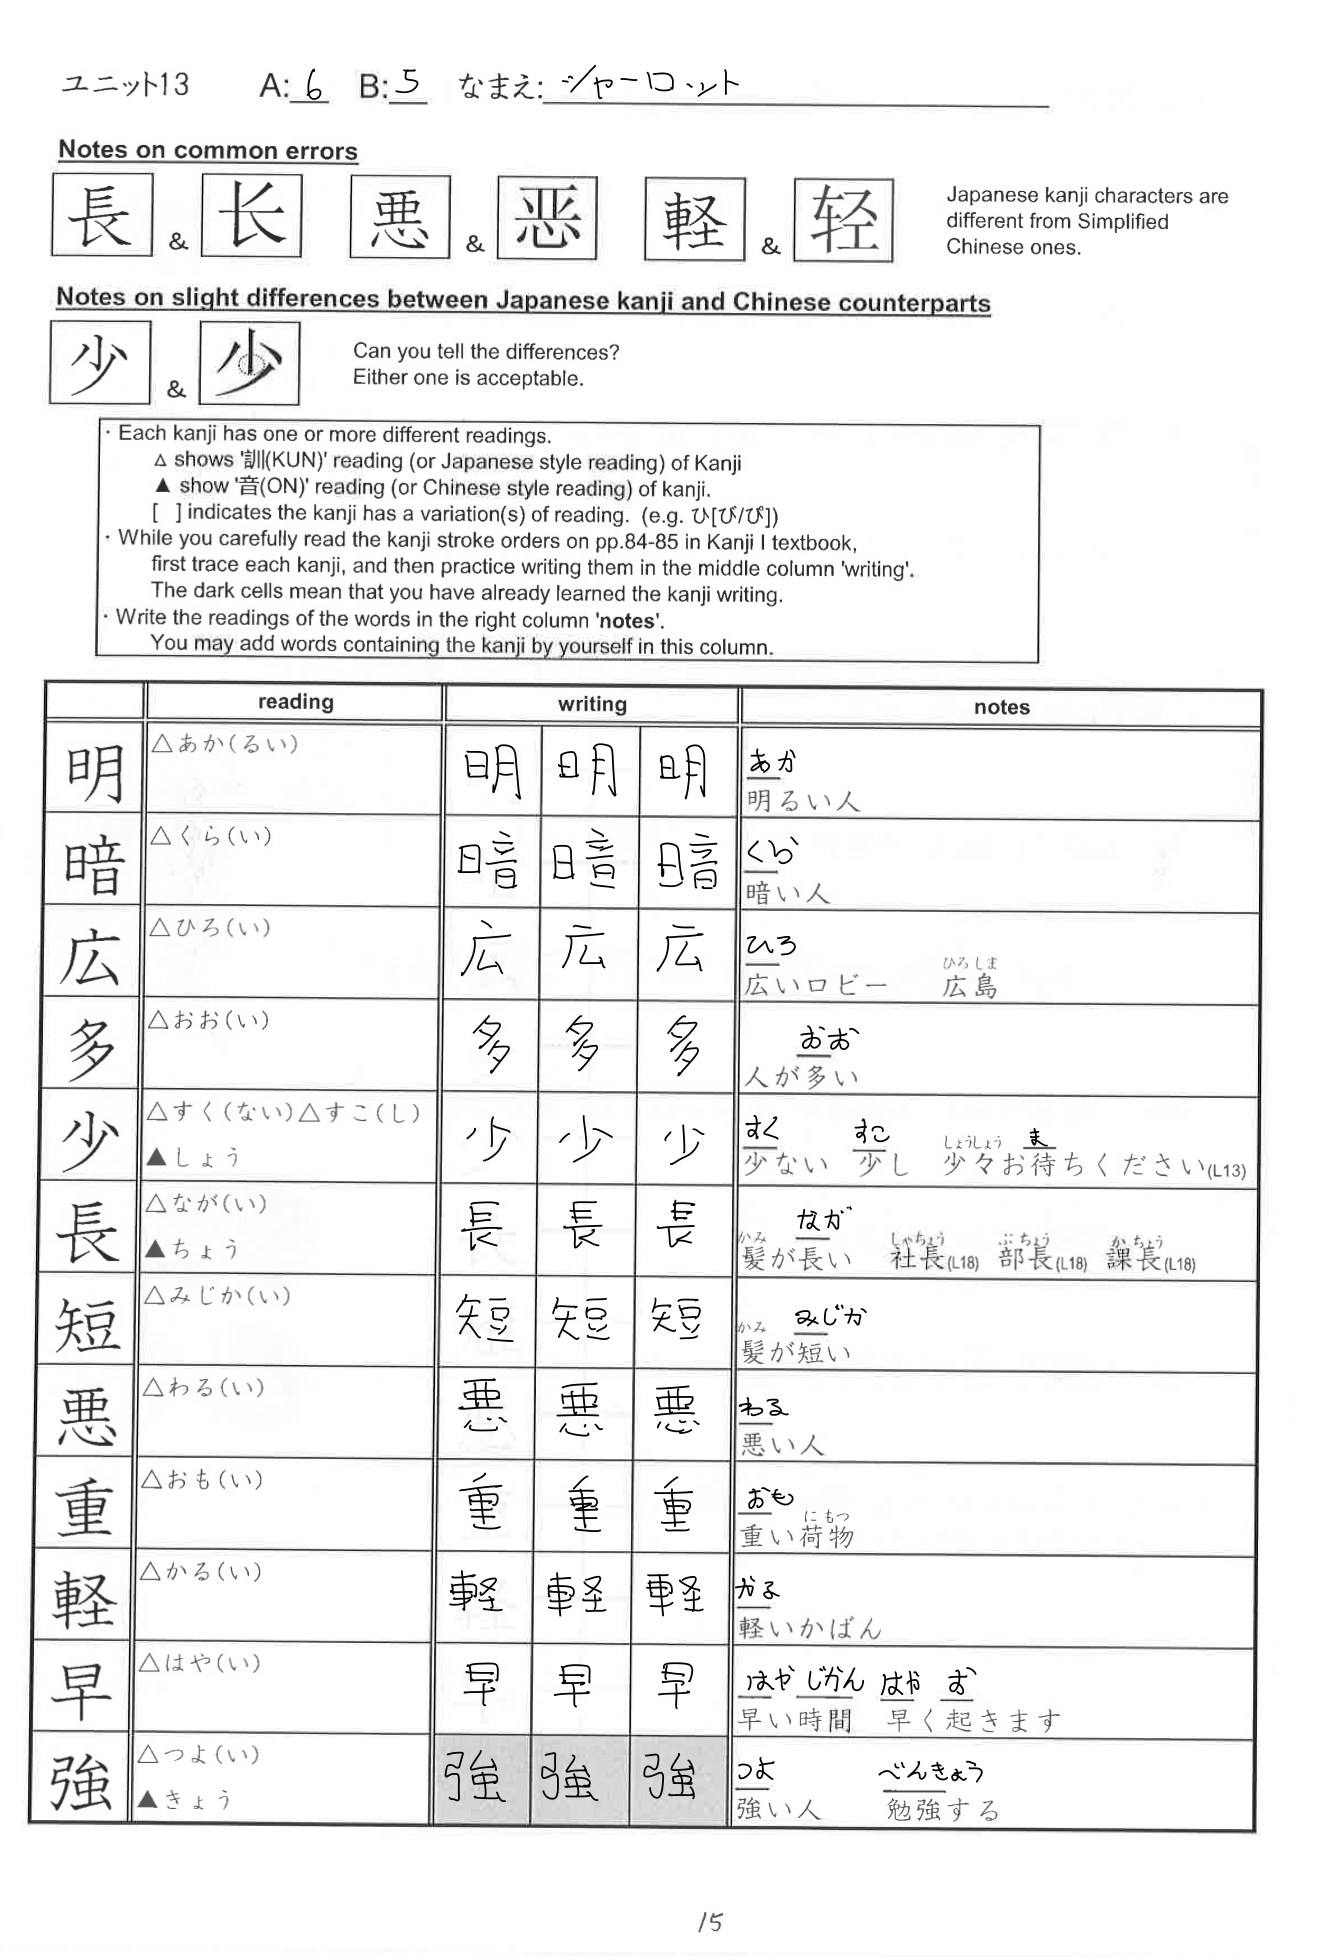 ユニット13 A: 6 B: 5 なまえ: シャーロット
Notes on common errors
長 & 长 悪 & 恶 軽 & 轻
Japanese kanji characters are
different from Simplified
Chinese ones.
Notes on slight differences between Japanese kanji and Chinese counterparts
少 & 少
Can you tell the differences?
Either one is acceptable.
・Each kanji has one or more different readings.
△ shows '訓(KUN)' reading (or Japanese style reading) of Kanji
▲ show '音(ON)' reading (or Chinese style reading) of kanji.
[ ] indicates the kanji has a variation(s) of reading. (e.g. ひ[び/ぴ])
・While you carefully read the kanji stroke orders on pp.84-85 in Kanji I textbook,
first trace each kanji, and then practice writing them in the middle column 'writing'.
The dark cells mean that you have already learned the kanji writing.
・Write the readings of the words in the right column 'notes'.
You may add words containing the kanji by yourself in this column.
reading writing notes
明 △あか(るい) 明 明 明
あか
明るい人
暗 △くら(い) 暗 暗 暗
くら
暗い人
広 △ひろ(い) 広 広 広
ひろ ひろしま
広いロビー 広島
多 △おお(い) 多 多 多
おお
人が多い
少 △すく(ない)△すこ(し) 少 少 少
▲しょう
すく すこ しょうしょう ま
少ない 少し 少々お待ちください(L13)
長 △なが(い) 長 長 長
▲ちょう
かみ なが しゃちょう ぶちょう かちょう
髪が長い 社長(L18) 部長(L18) 課長(L18)
短 △みじか(い) 短 短 短
かみ みじか
髪が短い
悪 △わる(い) 悪 悪 悪
わる
悪い人
重 △おも(い) 重 重 重
おも にもつ
重い荷物
軽 △かる(い) 軽 軽 軽
かる
軽いかばん
早 △はや(い) 早 早 早
はや じかん はや お
早い時間 早く起きます
強 △つよ(い) 強 強 強
▲きょう
つよ べんきょう
強い人 勉強する
15